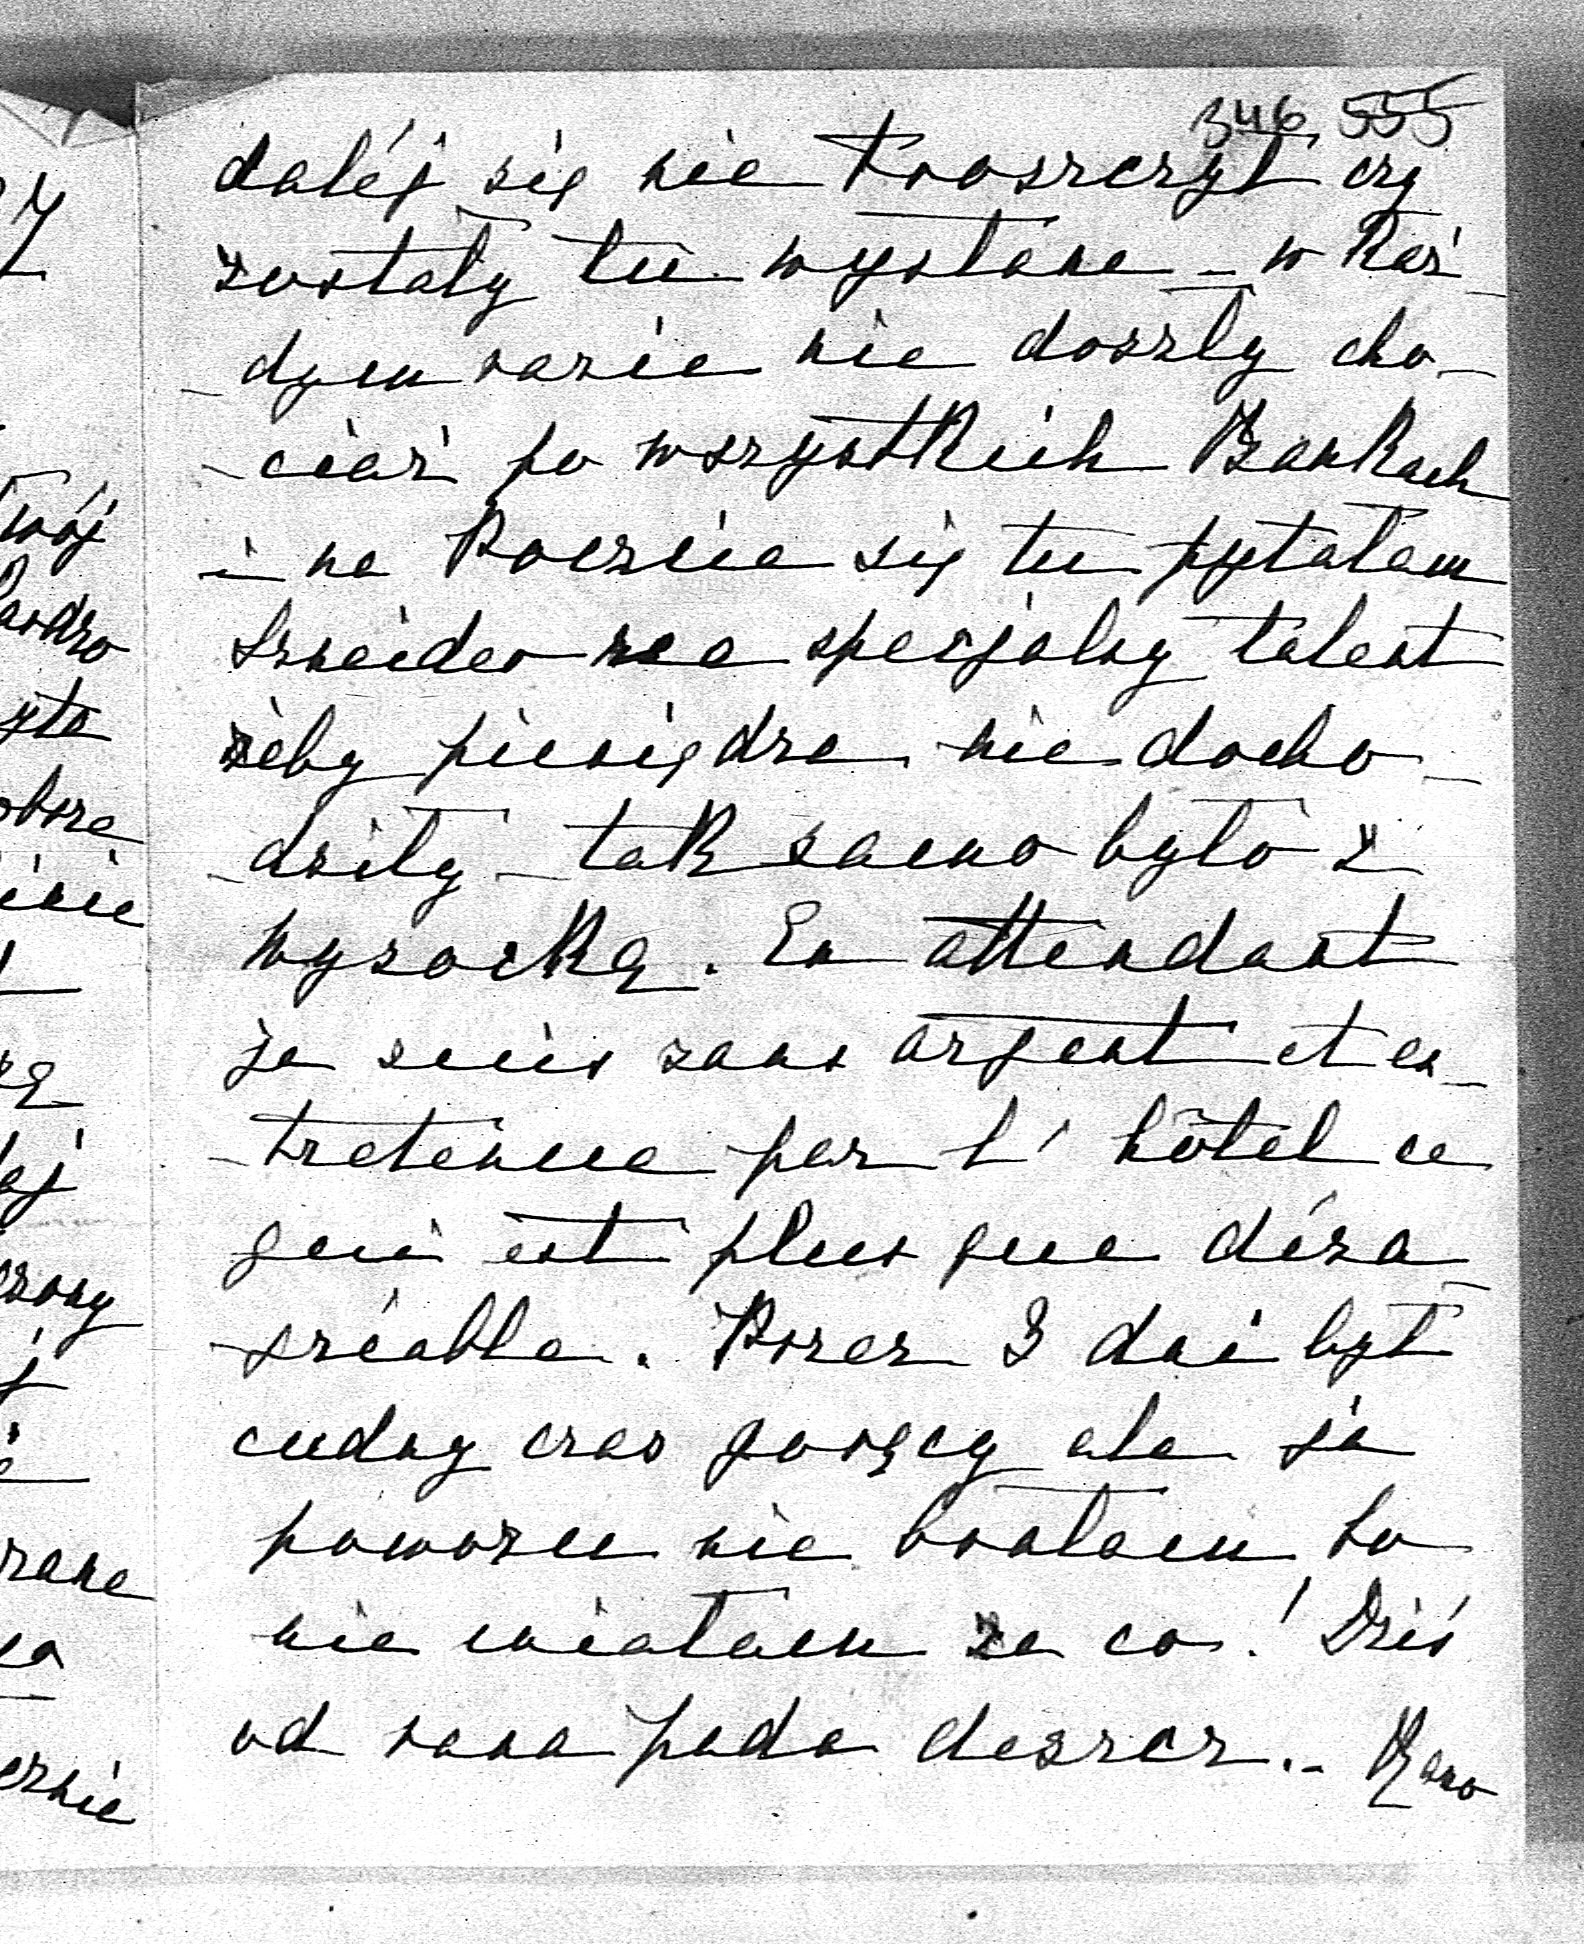 346 555
daléj się nie troszczył czy
zostały tu wysłane – w każ
– dym razie nie doszły cho –
– ciaż po wszystkich Bankach
i na Poczcie się tu pytałam
Szneider ma specjalny talent
żeby pieniędze nie docho –
– dziły – tak samo było z
Wysocką. En attendant
je suis sans argent et en –
– tretenue par l' hôtel ce
qui est plus que désa –
gréable. Przez 3 dni był
cudny czas gorący ale ja
powozu nie brałam bo
nie miałam za co! Dziś
od rana pada deszcz. –